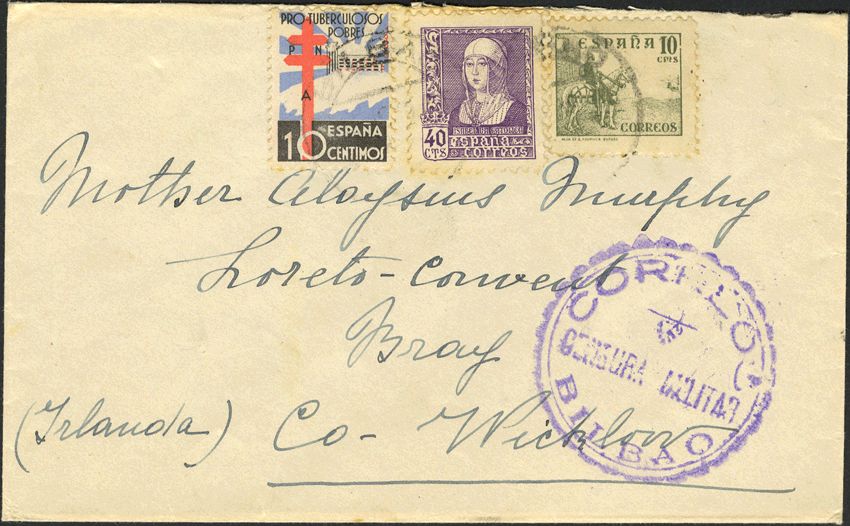 PRO-TUBERCULOSOS
POBRES
P N
A
ESPAÑA
10 CENTIMOS
40
CTS
ESPAÑA
CORREOS
ESPAÑA 10
CTS
CORREOS
Mother Aloysius Murphy
Loreto-Convent
Bray
(Irlanda) Co- Wicklow
CORREOS
CENSURA MILITAR
BILBAO